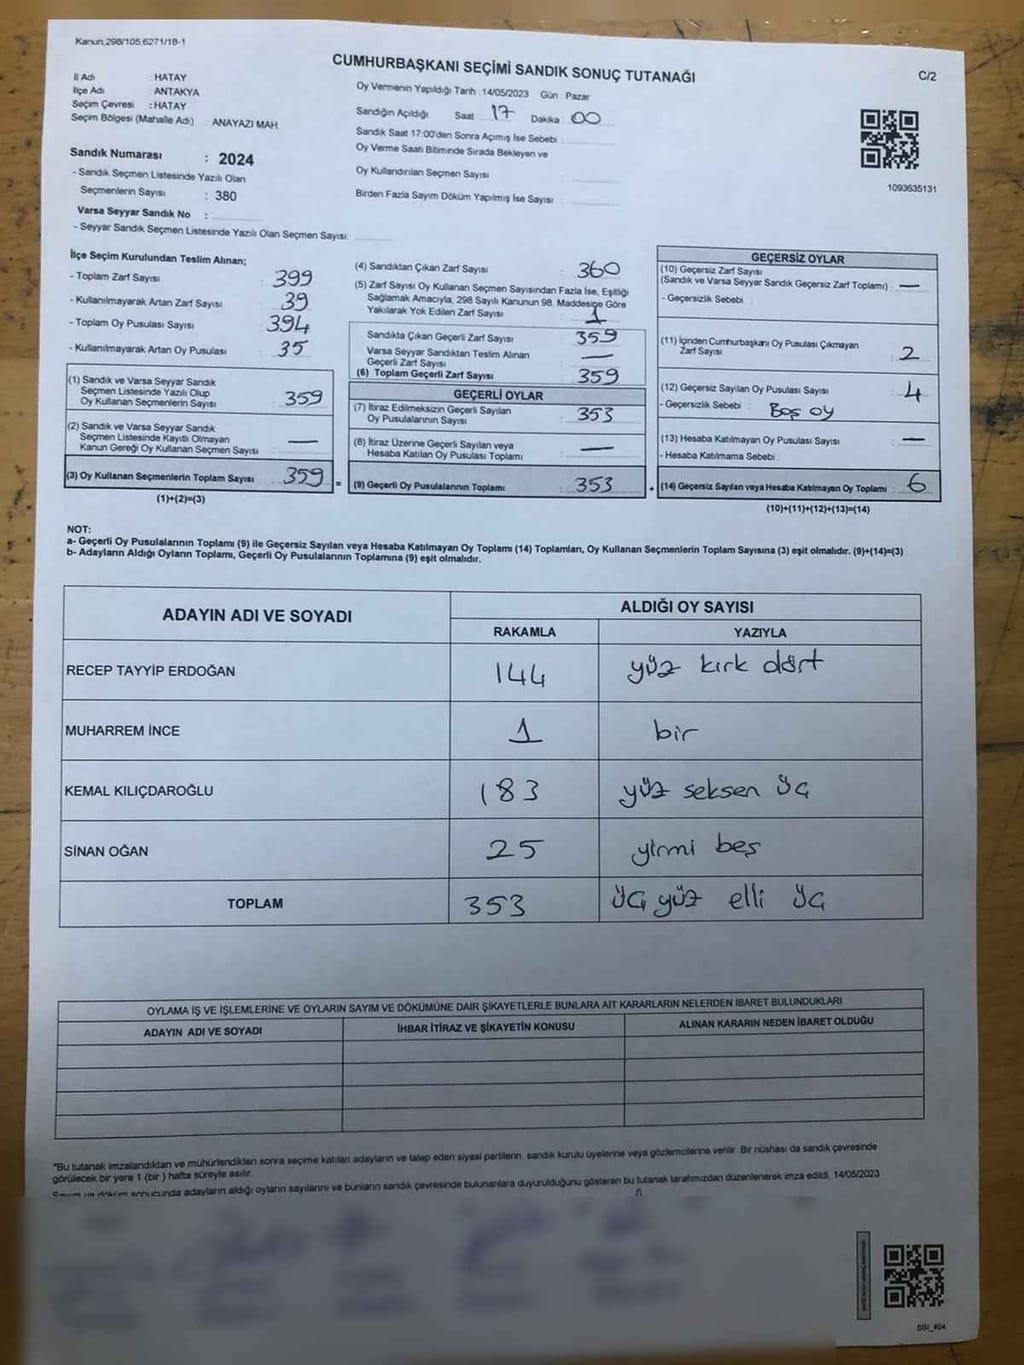 Kanun, 298/105,6271/18-1
CUMHURBAŞKANI SEÇİMİ SANDIK SONUÇ TUTANAĞI
C/2
İl Adı : HATAY
İlçe Adı : ANTAKYA
Seçim Çevresi : HATAY
Seçim Bölgesi (Mahalle Adı) ANAYAZI MAH.
Oy Vermenin Yapıldığı Tarih : 14/05/2023 Gün : Pazar
Sandığın Açıldığı Saat 17 Dakika : 00
Sandık Saat 17:00'den Sonra Açımış İse Sebebi :
Oy Verme Saati Bitiminde Sırada Bekleyen ve
Oy Kullandırılan Seçmen Sayısı :
Birden Fazla Sayım Döküm Yapılmış İse Sayısı :
1093635131
Sandık Numarası : 2024
- Sandık Seçmen Listesinde Yazılı Olan
Seçmenlerin Sayısı : 380
Varsa Seyyar Sandık No :
- Seyyar Sandık Seçmen Listesinde Yazılı Olan Seçmen Sayısı:
İlçe Seçim Kurulundan Teslim Alınan;
- Toplam Zarf Sayısı : 399
- Kullanılmayarak Artan Zarf Sayısı : 39
- Toplam Oy Pusulası Sayısı : 394
- Kullanılmayarak Artan Oy Pusulası : 35
(1) Sandık ve Varsa Seyyar Sandık
Seçmen Listesinde Yazılı Olup
Oy Kullanan Seçmenlerin Sayısı : 359
(2) Sandık ve Varsa Seyyar Sandık
Seçmen Listesinde Kayıtlı Olmayan
Kanun Gereği Oy Kullanan Seçmen Sayısı : —
(3) Oy Kullanan Seçmenlerin Toplam Sayısı : 359
(1)+(2)=(3)
=
(4) Sandıktan Çıkan Zarf Sayısı : 360
(5) Zarf Sayısı Oy Kullanan Seçmen Sayısından Fazla İse, Eşitliği
Sağlamak Amacıyla, 298 Sayılı Kanunun 98. Maddesine Göre
Yakılarak Yok Edilen Zarf Sayısı : 1
Sandıkta Çıkan Geçerli Zarf Sayısı : 359
Varsa Seyyar Sandıktan Teslim Alınan
Geçerli Zarf Sayısı : —
(6) Toplam Geçerli Zarf Sayısı : 359
GEÇERLİ OYLAR
(7) İtiraz Edilmeksizin Geçerli Sayılan
Oy Pusulalarının Sayısı : 353
(8) İtiraz Üzerine Geçerli Sayılan veya
Hesaba Katılan Oy Pusulası Toplamı : —
(9) Geçerli Oy Pusulalarının Toplamı : 353
+
GEÇERSİZ OYLAR
(10) Geçersiz Zarf Sayısı
(Sandık ve Varsa Seyyar Sandık Geçersiz Zarf Toplamı) : —
- Geçersizlik Sebebi :
(11) İçinden Cumhurbaşkanı Oy Pusulası Çıkmayan
Zarf Sayısı : 2
(12) Geçersiz Sayılan Oy Pusulası Sayısı : 4
- Geçersizlik Sebebi : Boş oy
(13) Hesaba Katılmayan Oy Pusulası Sayısı : —
- Hesaba Katılmama Sebebi :
(14) Geçersiz Sayılan veya Hesaba Katılmayan Oy Toplamı : 6
(10)+(11)+(12)+(13)=(14)
NOT:
a- Geçerli Oy Pusulalarının Toplamı (9) ile Geçersiz Sayılan veya Hesaba Katılmayan Oy Toplamı (14) Toplamları, Oy Kullanan Seçmenlerin Toplam Sayısına (3) eşit olmalıdır. (9)+(14)=(3)
b- Adayların Aldığı Oyların Toplamı, Geçerli Oy Pusulalarının Toplamına (9) eşit olmalıdır.
ADAYIN ADI VE SOYADI ALDIĞI OY SAYISI
RAKAMLA YAZIYLA
RECEP TAYYİP ERDOĞAN 144 yüz kırk dört
MUHARREM İNCE 1 bir
KEMAL KILIÇDAROĞLU 183 yüz seksen üç
SİNAN OĞAN 25 yirmi beş
TOPLAM 353 üç yüz elli üç
OYLAMA İŞ VE İŞLEMLERİNE VE OYLARIN SAYIM VE DÖKÜMÜNE DAİR ŞİKAYETLERLE BUNLARA AİT KARARLARIN NELERDEN İBARET BULUNDUKLARI
ADAYIN ADI VE SOYADI İHBAR İTİRAZ VE ŞİKAYETİN KONUSU ALINAN KARARIN NEDEN İBARET OLDUĞU
*Bu tutanak imzalandıktan ve mühürlendikten sonra seçime katılan adayların ve talep eden siyasi partilerin sandık kurulu üyelerine veya gözlemcilerine verilir. Bir nüshası da sandık çevresinde
görülecek bir yere 1 (bir ) hafta süreyle asılır.
Sayım ve döküm sonucunda adayların aldığı oyların sayılarını ve bunların sandık çevresinde bulunanlara duyurulduğunu gösteren bu tutanak tarafımızdan düzenlenerek imza edildi. 14/05/2023
SGI_404